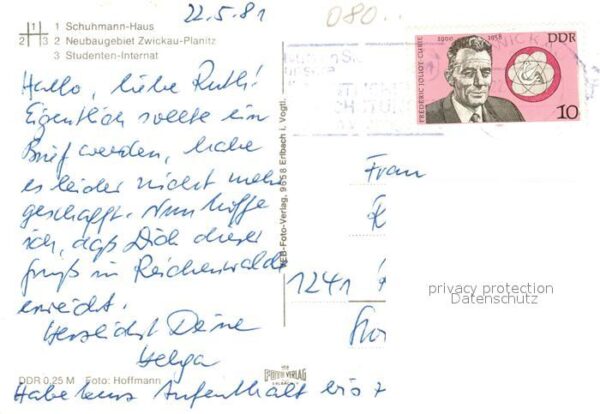 22.5.81
080..
1 Schuhmann-Haus
2 Neubaugebiet Zwickau-Planitz
3 Studenten-Internat
1
2 3
Hallo, liebe Ruth!
Eigentlich sollte ein
Brief werden, habe
es leider nicht mehr
geschafft. Nun hoffe
ich, daß Dich dieser
Gruß in Reichenwalde
erreicht.
Herzlichst Deine
Helga
DDR 0,25 M Foto: Hoffmann
Habe kurs Aufenthalt bis
VEB-Foto-Verlag, 9658 Erlbach i. Vogtl.
FOTO VERLAG
1900 1958 DDR
FREDERIC JOLIOT-CURIE
10
Frau
1241
privacy protection
Datenschutz